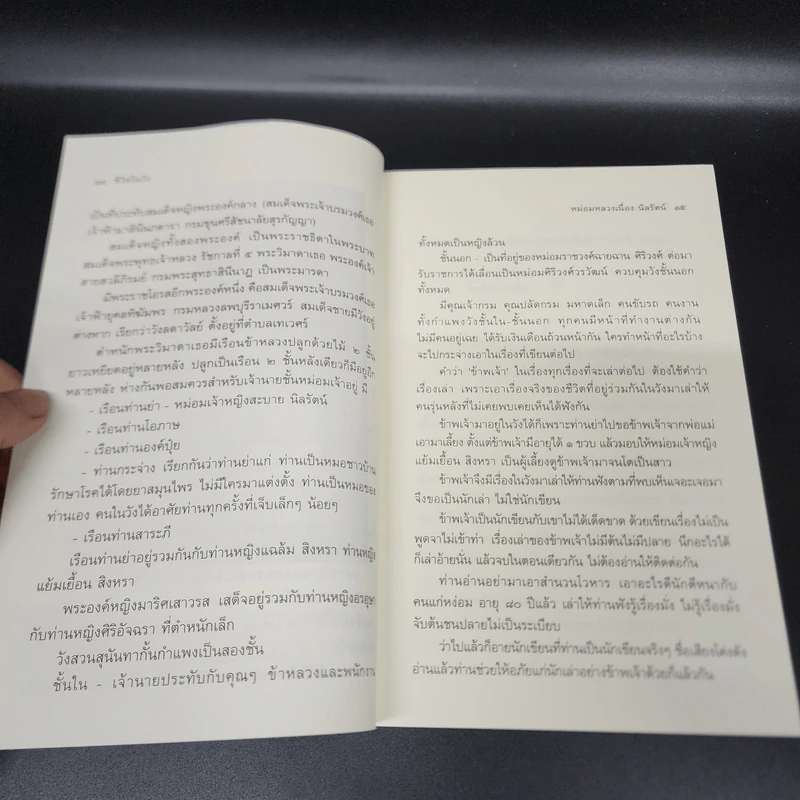 ๑๔ ชีวิตในวัง
เป็นที่ประทับสมเด็จหญิงพระองค์กลาง (สมเด็จพระเจ้าบรมวงศ์เธอ
เจ้าฟ้ามาลินีนภดารา กรมขุนศรีสัชนาลัยสุรกัญญา)
สมเด็จหญิงทั้งสองพระองค์ เป็นพระราชธิดาในพระบาท
สมเด็จพระพุทธเจ้าหลวง รัชกาลที่ ๕ พระวิมาดาเธอ พระองค์เจ้า
สายสวลีภิรมย์ กรมพระสุทธาสินีนาฏ เป็นพระมารดา
มีพระราชโอรสอีกพระองค์หนึ่ง คือสมเด็จพระเจ้าบรมวงศ์เธอ
เจ้าฟ้ายุคลทิฆัมพร กรมหลวงลพบุรีราเมศวร์ สมเด็จชายมีวังอยู่
ต่างหาก เรียกว่าวังลดาวัลย์ ตั้งอยู่ที่ตำบลเทเวศร์
ตำหนักพระวิมาดาเธอมีเรือนข้าหลวงปลูกด้วยไม้ ๒ ชั้น
ยาวเหยียดอยู่หลายหลัง ปลูกเป็นเรือน ๒ ชั้นหลังเดียวก็มีอยู่อีก
หลายหลัง ห่างกันพอสมควรสำหรับเจ้านายชั้นหม่อมเจ้าอยู่ มี
- เรือนท่านย่า - หม่อมเจ้าหญิงสะบาย นิลรัตน์
- เรือนท่านโอภาษ
- เรือนท่านองค์ปุ๋ย
- ท่านกระจ่าง เรียกกันว่าท่านย่าแก่ ท่านเป็นหมอชาวบ้าน
รักษาโรคได้โดยยาสมุนไพร ไม่มีใครมาแต่งตั้ง ท่านเป็นหมอของ
ท่านเอง คนในวังได้อาศัยท่านทุกครั้งที่เจ็บเล็กๆ น้อยๆ
- เรือนท่านสาระภี
เรือนท่านย่าอยู่รวมกันกับท่านหญิงแฉล้ม สิงหรา ท่านหญิง
แย้มเยื้อน สิงหรา
พระองค์หญิงมาริศเสาวรส เสด็จอยู่รวมกับท่านหญิงอรอุษา
กับท่านหญิงศิริอัจฉรา ที่ตำหนักเล็ก
วังสวนสุนันทากั้นกำแพงเป็นสองชั้น
ชั้นใน - เจ้านายประทับกับคุณๆ ข้าหลวงและพนักงาน
หม่อมหลวงเนื่อง นิลรัตน์ ๑๕
ทั้งหมดเป็นหญิงล้วน
ชั้นนอก - เป็นที่อยู่ของหม่อมราชวงศ์ฉายฉาน ศิริวงศ์ ต่อมา
รับราชการได้เลื่อนเป็นหม่อมศิริวงศ์วรวัฒน์ ควบคุมวังชั้นนอก
ทั้งหมด
มีคุณเจ้ากรม คุณปลัดกรม มหาดเล็ก คนขับรถ คนงาน
ทั้งกำแพงวังชั้นใน-ชั้นนอก ทุกคนมีหน้าที่ทำงานต่างกัน
ไม่มีคนอยู่เฉย ได้รับเงินเดือนถ้วนหน้ากัน ใครทำหน้าที่อะไรบ้าง
จะไปกระจ่างเอาในเรื่องที่เขียนต่อไป
คำว่า 'ข้าพเจ้า' ในเรื่องทุกเรื่องที่จะเล่าต่อไป ต้องใช้คำว่า
เรื่องเล่า เพราะเอาเรื่องจริงของชีวิตที่อยู่ร่วมกันในวังมาเล่าให้
คนรุ่นหลังที่ไม่เคยพบเคยเห็นได้ฟังกัน
ข้าพเจ้ามาอยู่ในวังได้ก็เพราะท่านย่าไปขอข้าพเจ้าจากพ่อแม่
เอามาเลี้ยง ตั้งแต่ข้าพเจ้ามีอายุได้ ๑ ขวบ แล้วมอบให้หม่อมเจ้าหญิง
แย้มเยื้อน สิงหรา เป็นผู้เลี้ยงดูข้าพเจ้ามาจนโตเป็นสาว
ข้าพเจ้าจึงมีเรื่องในวังมาเล่าให้ท่านฟังตามที่พบเห็นเจอะเจอมา
จึงขอเป็นนักเล่า ไม่ใช่นักเขียน
ข้าพเจ้าเป็นนักเขียนกับเขาไม่ได้เด็ดขาด ด้วยเขียนเรื่องไม่เป็น
พูดจาไม่เข้าท่า เรื่องเล่าของข้าพเจ้าไม่มีต้นไม่มีปลาย นึกอะไรได้
ก็เล่าอ้ายนั่น แล้วจบในตอนเดียวกัน ไม่ต้องอ่านให้ติดต่อกัน
ท่านอ่านอย่ามาเอาสำนวนโวหาร เอาอะไรดีนักดีหนากับ
คนแก่หง่อม อายุ ๘๐ ปีแล้ว เล่าให้ท่านฟังรู้เรื่องมั่ง ไม่รู้เรื่องมั่ง
จับต้นชนปลายไม่เป็นระเบียบ
ว่าไปแล้วก็อายนักเขียนที่ท่านเป็นนักเขียนจริงๆ ชื่อเสียงโด่งดัง
อ่านแล้วท่านช่วยให้อภัยแก่นักเล่าอย่างข้าพเจ้าด้วยก็แล้วกัน